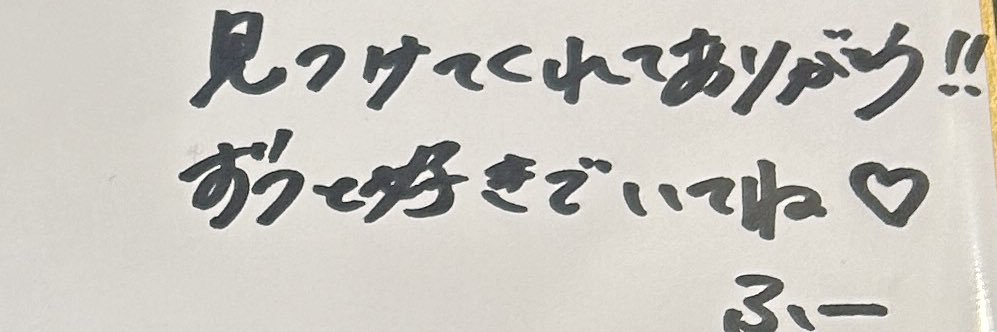 見つけてくれてありがとう!!
ずっと好きでいてね♡
ふぃー